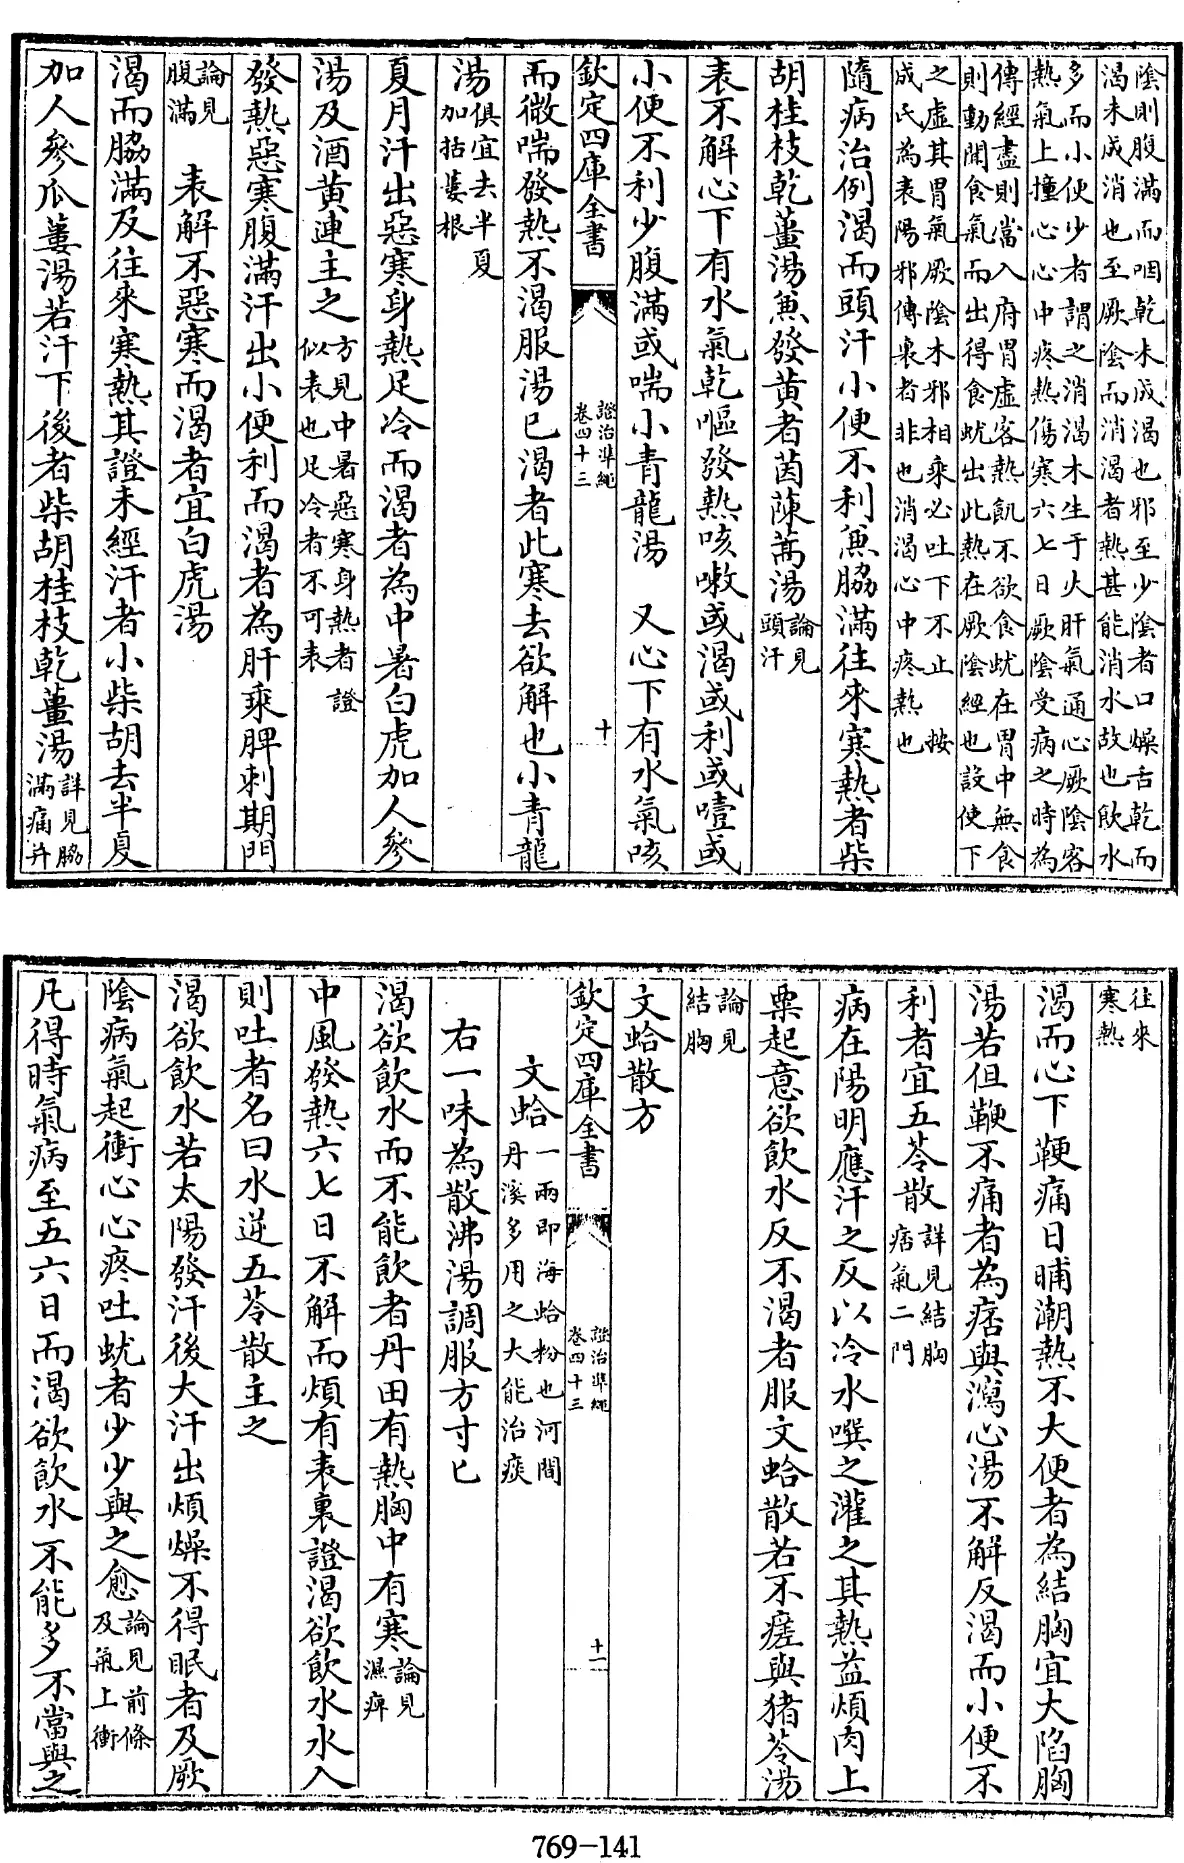 陰則腹滿而咽乾未成渴也邪至少陰者口燥舌乾而
渴未成消也至厥陰而消渴者熱甚能消水故也飲水
多而小便少者謂之消渴木生于火肝氣通心厥陰客
熱氣上撞心心中疼熱傷寒六七日厥陰受病之時為
傳經盡則當入府胃虛客熱飢不欲食蚘在胃中無食
則動聞食氣而出得食蚘出此熱在厥陰經也設使下
之虛其胃氣厥陰木邪相乘必吐下不止 按
成氏為表陽邪傳裏者非也消渴心中疼熱也
隨病治例渴而頭汗小便不利兼脇滿往來寒熱者柴
胡桂枝乾薑湯兼發黃者茵蔯蒿湯論見
頭汗
表不解心下有水氣乾嘔發熱咳嗽或渴或利或噎或
小便不利少腹滿或喘小青龍湯 又心下有水氣咳
欽定四庫全書
證治準繩
卷四十三
十
而微喘發熱不渴服湯已渴者此寒去欲解也小青龍
湯俱宜去半夏
加括蔞根
夏月汗出惡寒身熱足冷而渴者為中暑白虎加人參
湯及酒黃連主之方見中暑惡寒身熱者證
似表也足冷者不可表
發熱惡寒腹滿汗出小便利而渴者為肝乘脾刺期門
論見
腹滿 表解不惡寒而渴者宜白虎湯
渴而脇滿及往來寒熱其證未經汗者小柴胡去半夏
加人參瓜蔞湯若汗下後者柴胡桂枝乾薑湯詳見脇
滿痛并
往來
寒熱
渴而心下鞕痛日晡潮熱不大便者為結胸宜大陷胸
湯若但鞕不痛者為痞與瀉心湯不解反渴而小便不
利者宜五苓散詳見結胸
痞氣二門
病在陽明應汗之反以冷水噀之灌之其熱益煩肉上
粟起意欲飲水反不渴者服文蛤散若不瘥與猪苓湯
論見
結胸
文蛤散方
欽定四庫全書
證治準繩
卷四十三
十一
文蛤一兩即海蛤粉也河間
丹溪多用之大能治痰
右一味為散沸湯調服方寸匕
渴欲飲水而不能飲者丹田有熱胸中有寒論見
濕痹
中風發熱六七日不解而煩有表裏證渴欲飲水水入
則吐者名曰水逆五苓散主之
渴欲飲水若太陽發汗後大汗出煩燥不得眠者及厥
陰病氣起衝心心疼吐蚘者少少與之愈論見前條
及氣上衝
凡得時氣病至五六日而渴欲飲水不能多不當與之
769-141